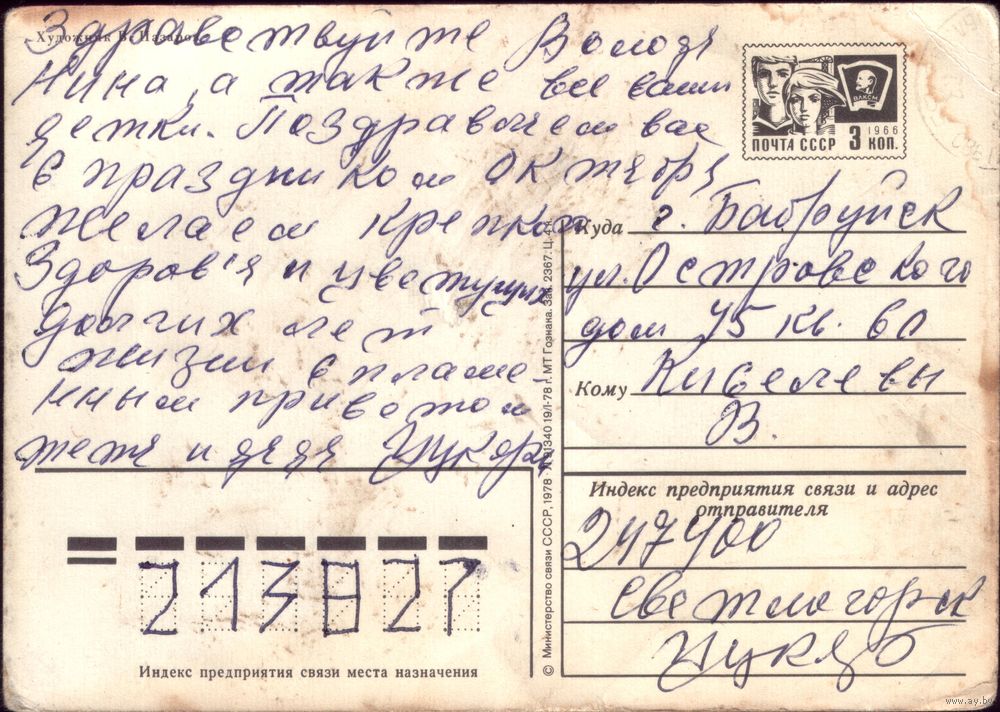 Художник В. Назаров
Здравствуйте Володя
Нина, а также все ваши
детки. Поздравляем вас
с праздником Октября
желаем крепкого
Здоров'я и цветущих
долгих лет
жизни с пламе
нным приветом
тетя и дядя
ПОЧТА СССР 3 КОП.
1966
ВЛКСМ
Куда г. Бабруйск
ул. Островского
дом 45 кв. 60
Кому Киселевы
В.
Индекс предприятия связи и адрес
отправителя
247400
Светлогорск
213827
Индекс предприятия связи места назначения
© Министерство связи СССР, 1978 19/I-78 г. МТ Гознака. Зак. 2367. Ц. 4 к.
www.ay.by